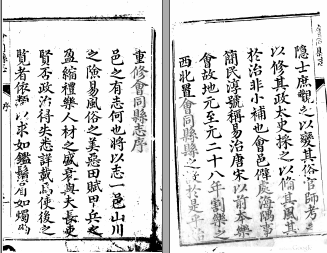 隱士庶觀之以變其俗官師考
以修其政太史採之以備其風其
於治非小補也會邑僻處海隅事
簡民淳號稱易治唐宋以前本樂
會故地元至元二十八年割樂
西北置會同縣縣之於是
重修會同縣志序
邑之有志何也將以志一邑山川
之險易風俗之美惡田賦甲兵之
盈縮禮樂人材之盛衰與夫長吏
賢否政治得失悉詳載焉使後之
覽者依以求如鑑鬚眉如燭
序